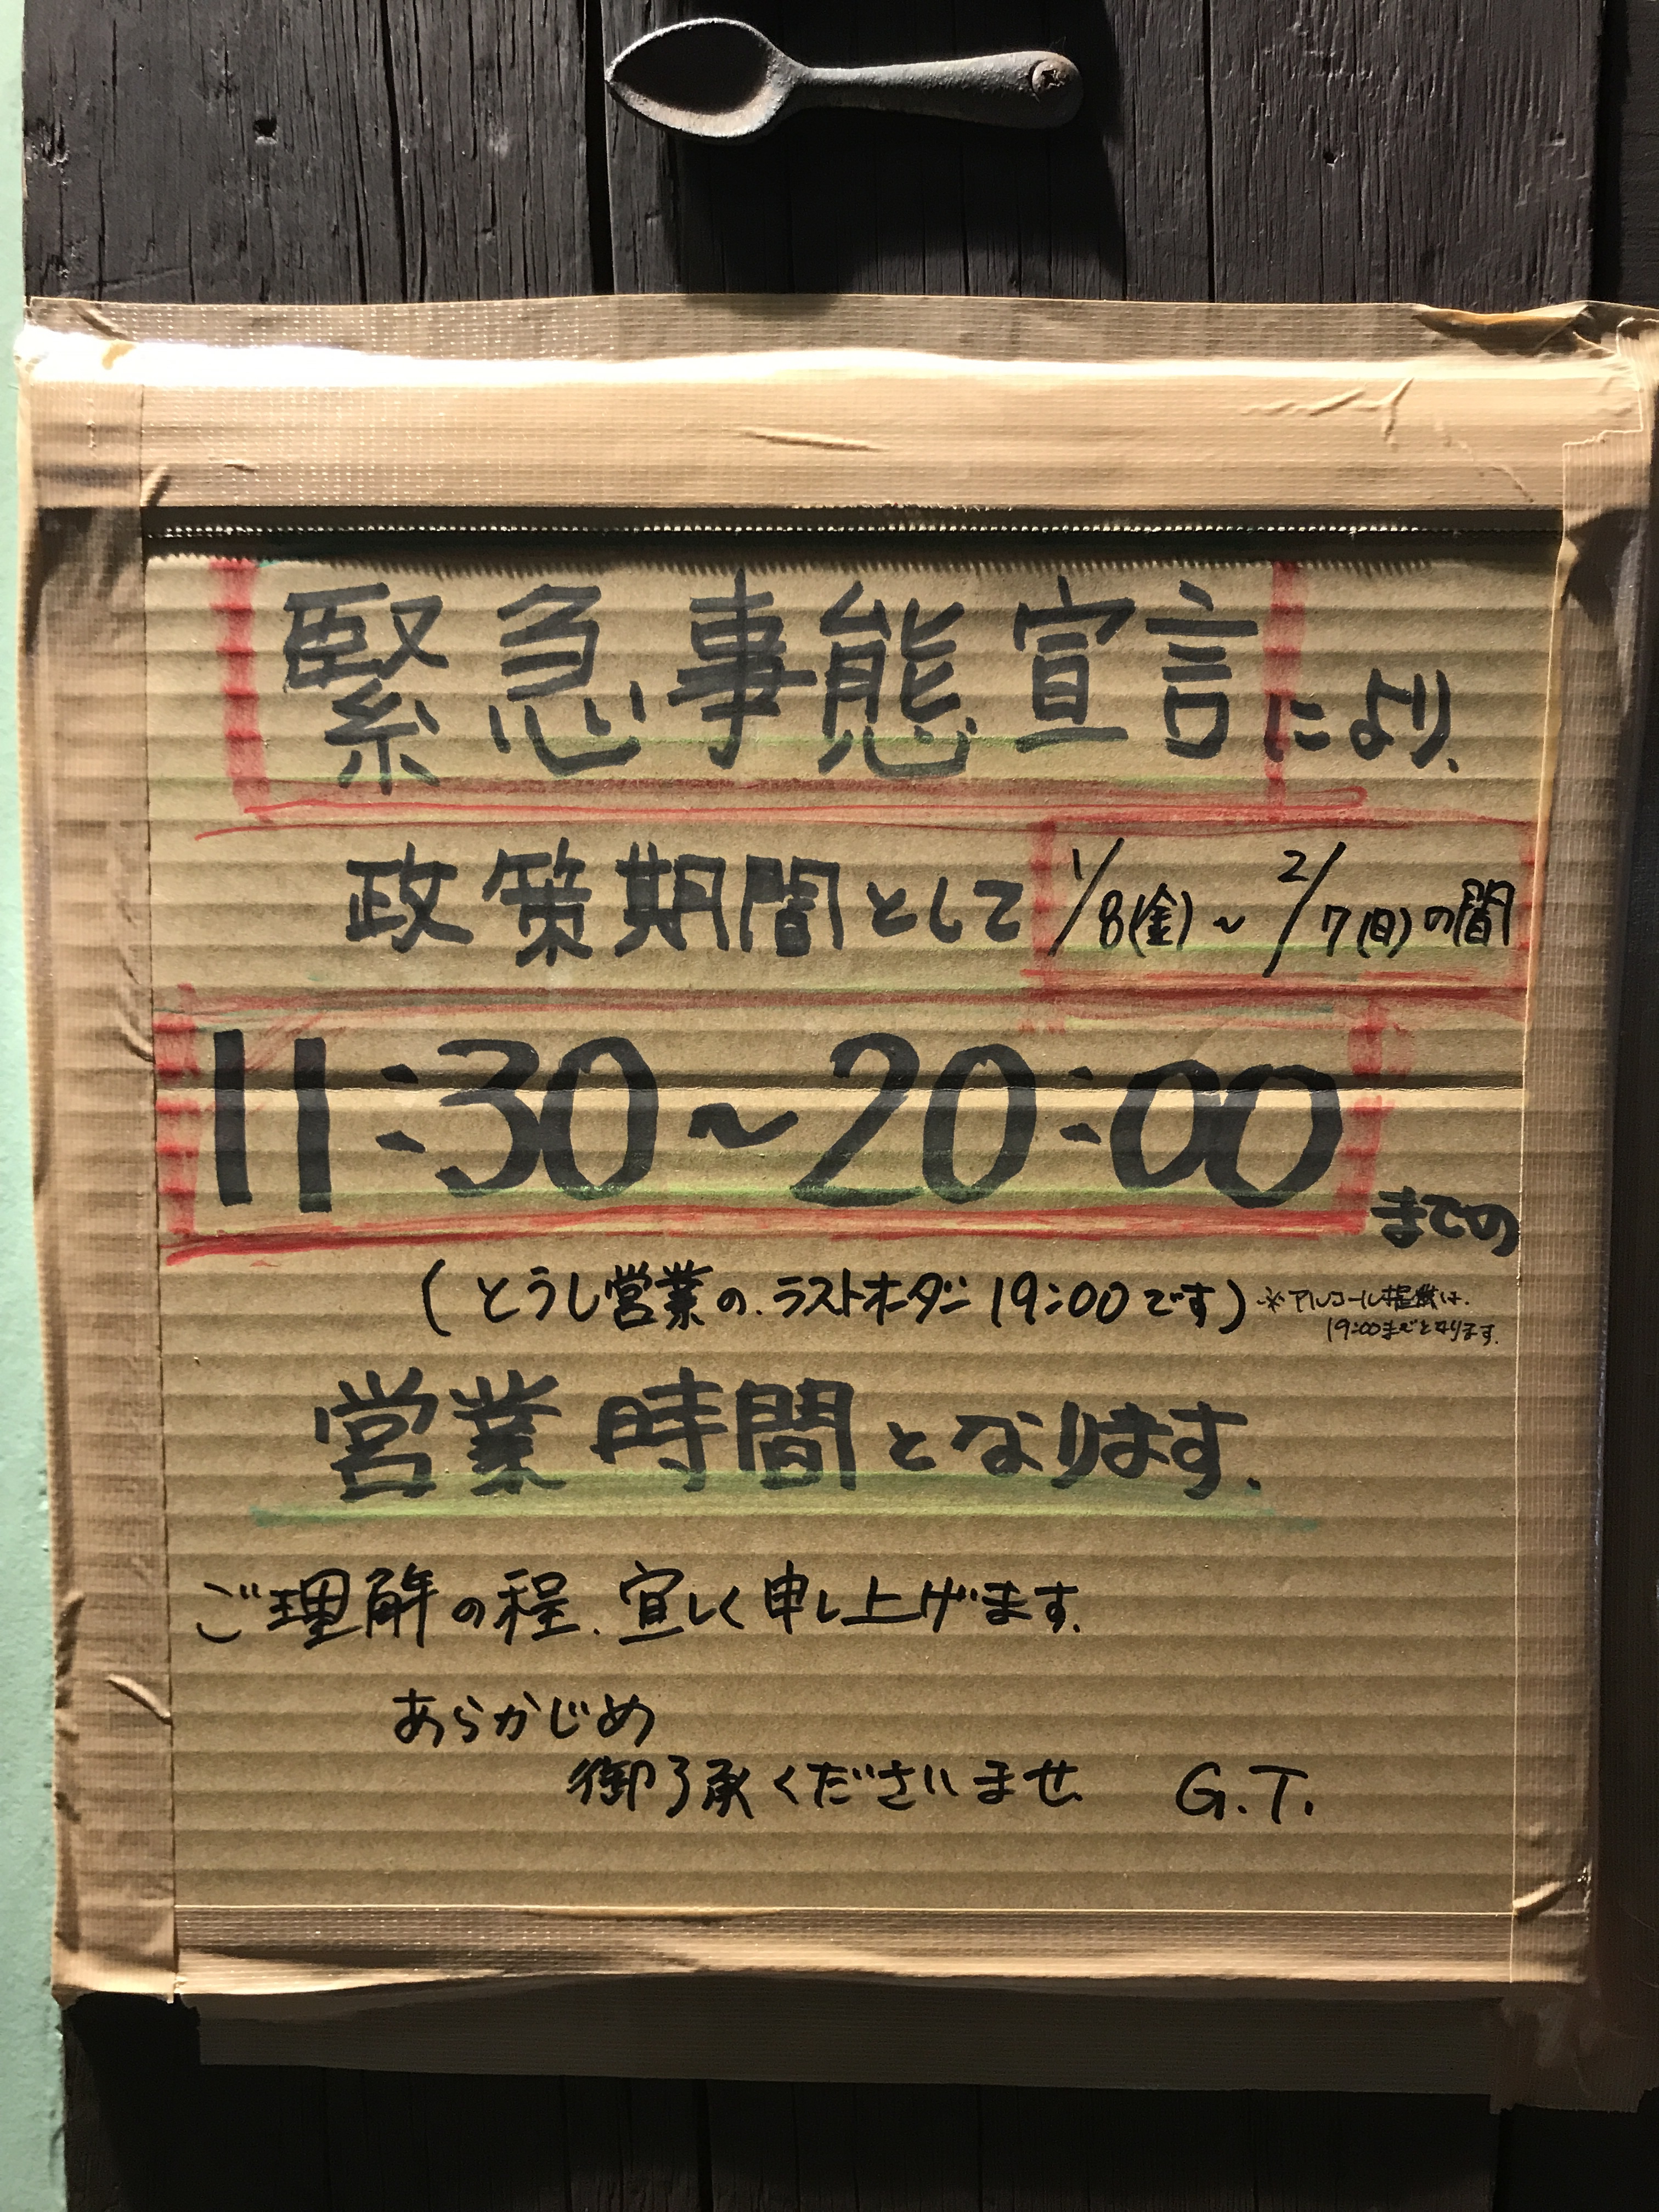 緊急事態宣言により、
政策期間として 1/8(金)～2/7(日)の間
11:30～20:00までの
(とうし営業の、ラストオーダー19:00です)※アルコール提供は、
19:00までとなります。
営業時間となります。
ご理解の程、宜しく申し上げます。
あらかじめ
御了承くださいませ G.T.